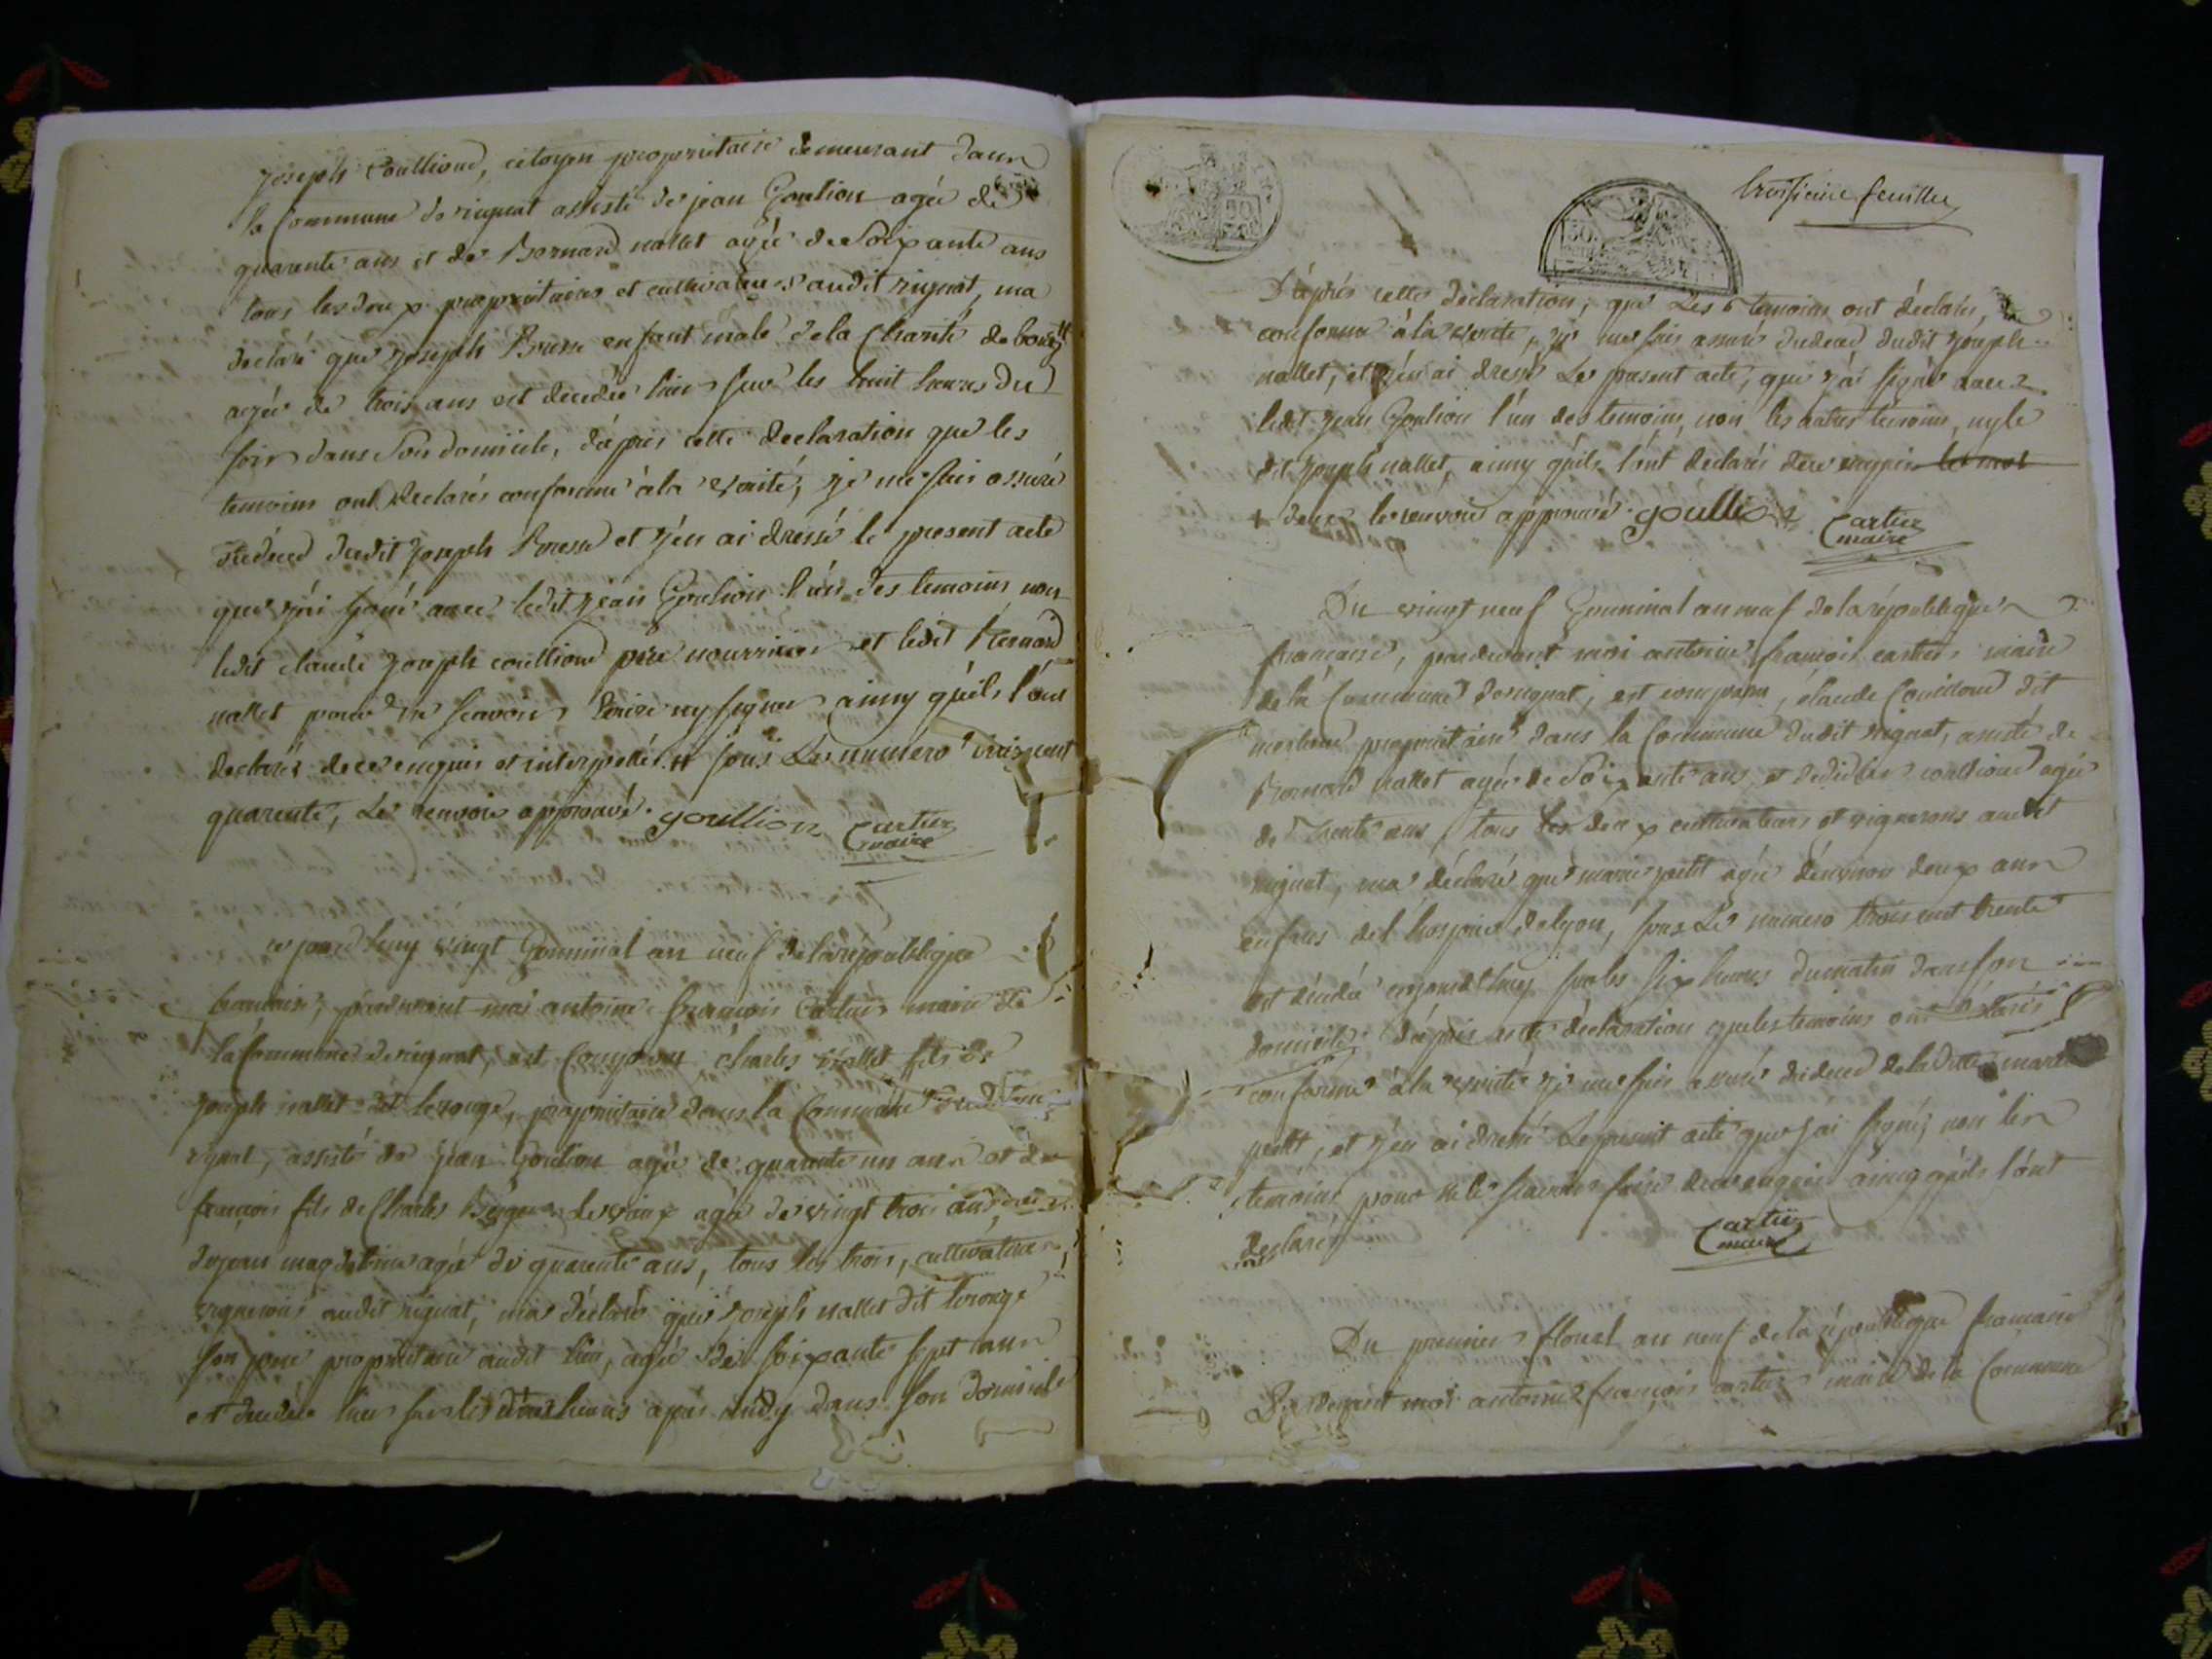 joseph Coullioud, citoyen propriétaire demeurant dans
la Commune de rignat assisté de jean Goulion agée de
quarente ans et de Bernard nallet agée de Soixante ans
tous les deux propriétaires et cultivateurs audit rignat, ma
declaré que joseph Bresse enfant male de la Charité de bourg
agée de trois ans est decedée hier sur les huit heures du
soir dans Son domicile, d'après cette declaration que les
temoins ont declarés conforme à la verité, je me suis assuré
du deced dudit joseph Bresse et j'en ai dressé le present acte
que j'ai signé avec ledit jean Goulion l'un des temoins non
ledit claude joseph coullioud père nourricier et ledit Bernard
nallet pour ne scavoir Ecrire ny signer ainsy qu'ils l'ont
declarés de ce enquis et interpellé # sous Le numero
quarente, Le renvoie approuvé. goullion Cartier
maire
ce jourd'huy vingt Germinal an neuf de la republique
francaise, pardevant moi antoine françois Cartier maire de
la Commune de rignat, est Comparu charles nallet fils de
joseph nallet dit lerouge, propriétaire dans la Commune
rignat, assisté de jean Goulion agée de quarente un ans et de
françois fils de Charles agée de vingt trois ans,
de jean agée de quarente ans, tous les trois, cultivateurs
vignerons audit rignat, ma declaré que joseph nallet dit lerouge
son père propriétaire audit lieu, agée de soixante sept ans
est decedée hier sur les heures après midy dans son domicile
troisieme feuille
D'après cette déclaration, que Les temoins ont déclarés,
conforme à la verité, je me suis assuré du deced dudit joseph
nallet, et j'en ai dressé Le present acte, que j'ai signé avec
ledit jean Goulion l'un des temoins, non les autres temoins, ny le
dit nallet, ainsy qu'ils l'ont declarés de ce enquis le mot
le renvoie approuvé. goullion Cartier
maire
Du vingt neuf Germinal an neuf de la république
francaise, pardevant moi antoine françois cartier maire
de la Commune de rignat, est comparu, claude Coullioud dit
propriétaire dans la Commune dudit rignat, assisté de
Bernard nallet agée de Soixante ans, et de coullioud agée
de Trente ans, tous Les deux cultivateurs et vignerons audit
rignat, ma déclaré que marie petit agée d'environ deux ans
enfans de l'hospice de lyon, sous Le numero trois cent trente
est décedée cejourd'huy sur les six heures du matin dans son
domicile, d'après cette déclaration que les temoins ont déclarés
conforme à la verité je me suis assuré du deced de la ditte marie
petit, et j'en ai dressé Le present acte que j'ai signé, non les
temoins, pour ne le scavoir faire de ce enquis ainsy qu'ils l'ont
declarés Cartier
maire
Du premier floreal an neuf de la république francaise
Pardevant moi antoine françois cartier maire de la Commune